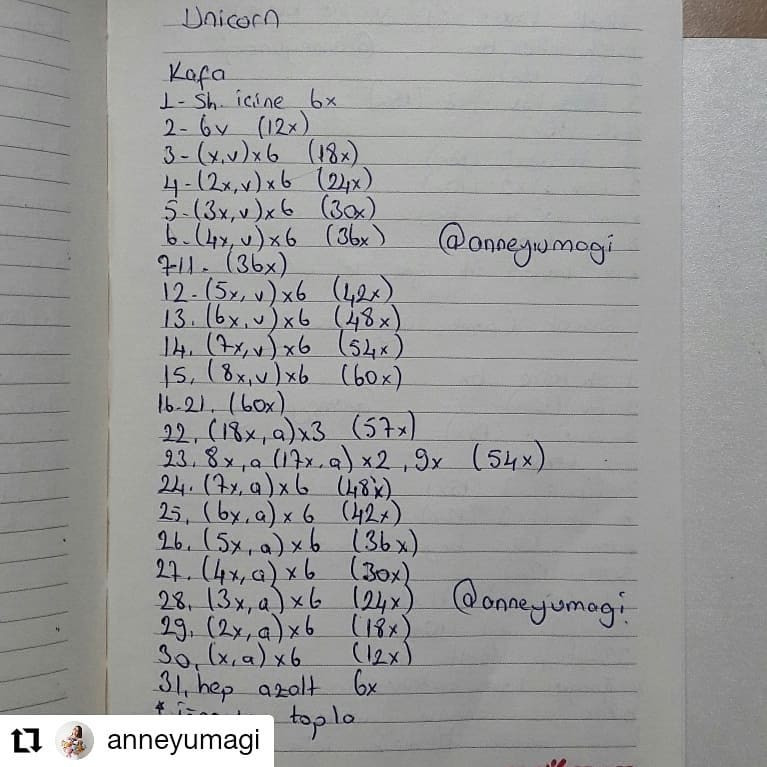 Unicorn
Kafa
1- Sh. icine 6x
2- 6v (12x)
3- (x,v)x6 (18x)
4- (2x,v)x6 (24x)
5- (3x,v)x6 (30x)
6- (4x,v)x6 (36x) @anneyumagi
7-11. (36x)
12- (5x,v)x6 (42x)
13. (6x,v)x6 (48x)
14. (7x,v)x6 (54x)
15. (8x,v)x6 (60x)
16-21. (60x)
22. (18x,a)x3 (57x)
23. 8x,a (17x,a)x2, 9x (54x)
24. (7x,a)x6 (48x)
25. (6x,a)x6 (42x)
26. (5x,a)x6 (36x)
27. (4x,a)x6 (30x)
28. (3x,a)x6 (24x) @anneyumagi
29. (2x,a)x6 (18x)
30. (x,a)x6 (12x)
31. hep azalt 6x
* topla
anneyumagi